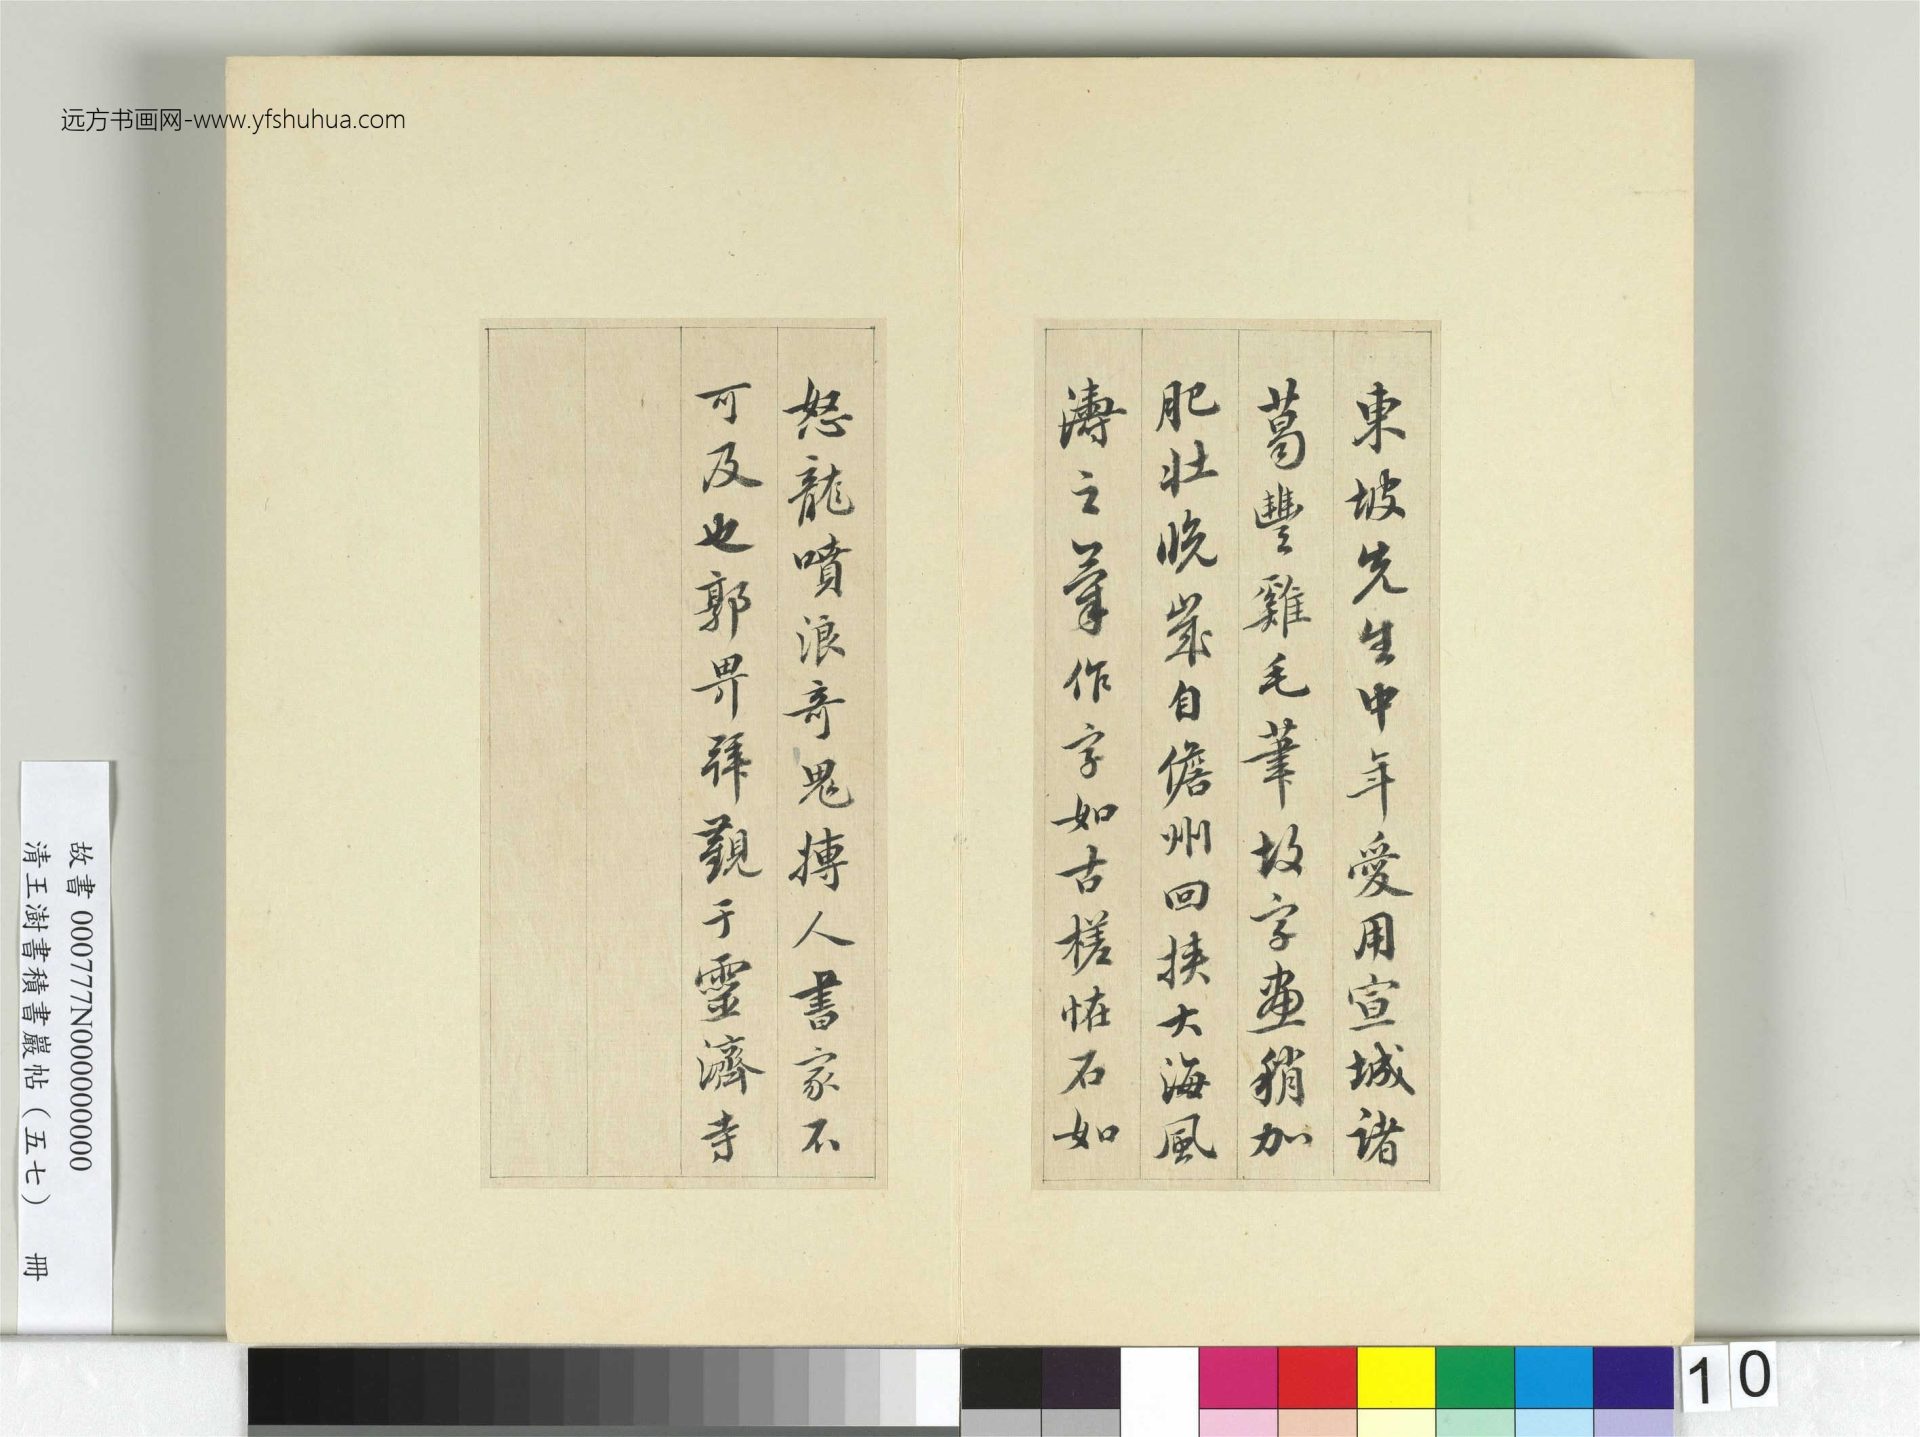 東坡先生中年愛用宣城諸
葛豐雞毛筆故字畫稍加
肥壯晚歲自儋州回挾大海風
濤之筆作字如古槎怪石如
怒龍噴浪奇鬼搏人書家不
可及也郭畀拜觀于靈濟寺
远方书画网-www.yfshuhua.com
故書 000777N000000000
清王澍書積書巖帖(五七) 冊
10